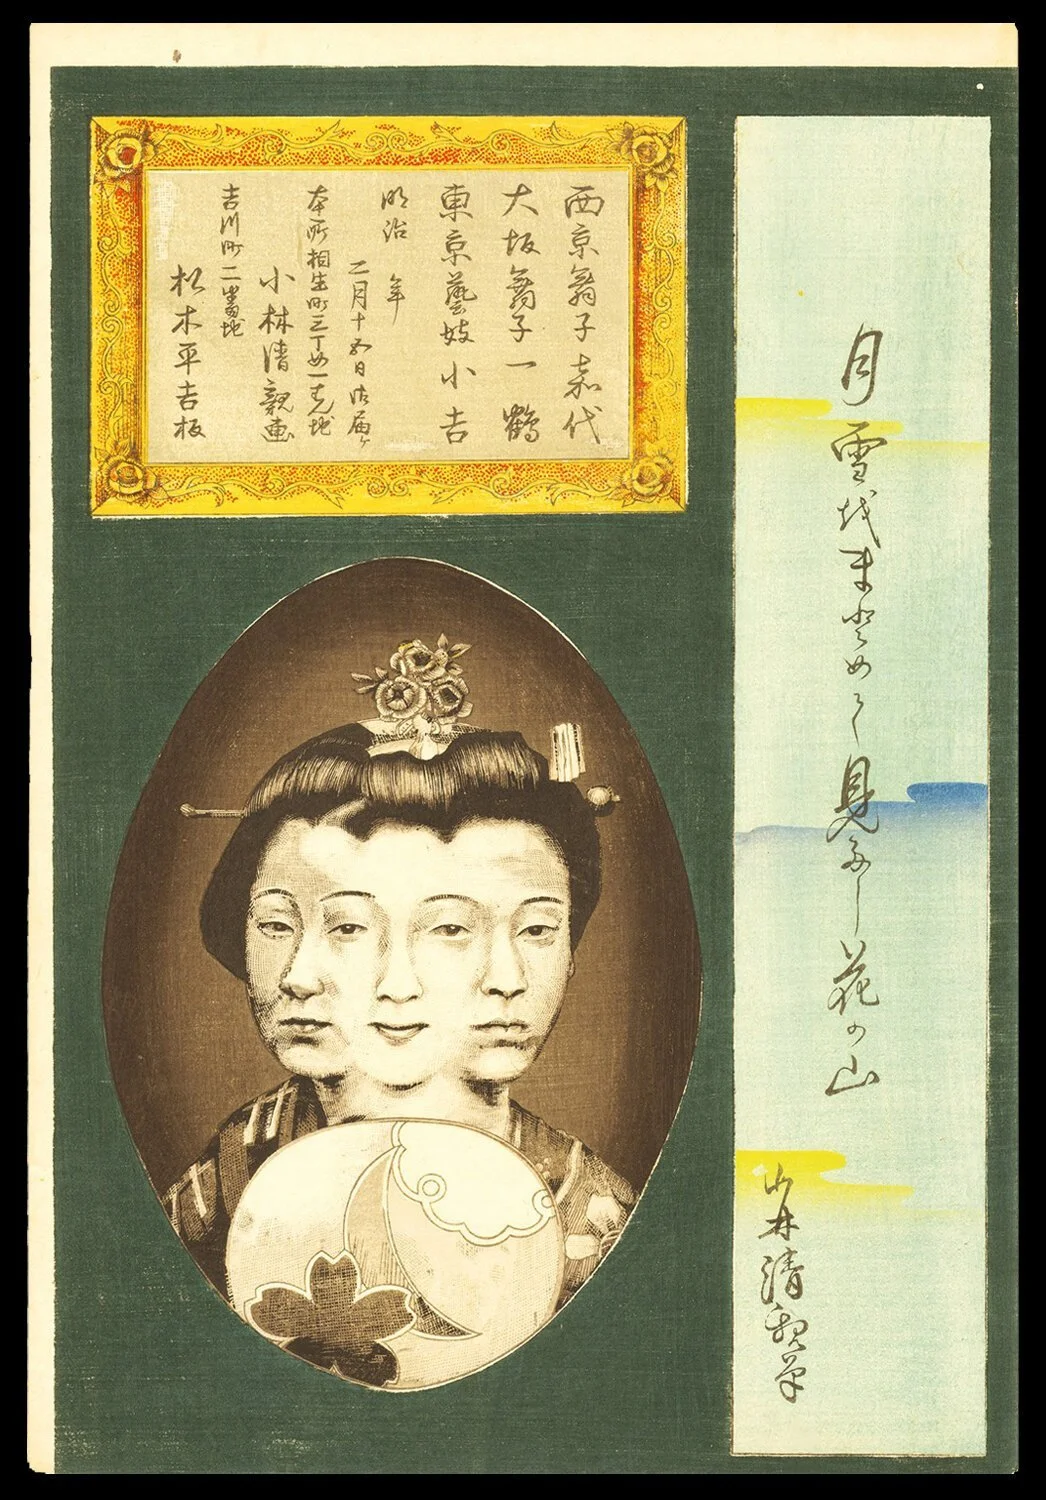 西京舞子嘉代
大坂舞子一鶴
東京藝妓小吉
明治 年
二月十五日御届ケ
本所相生町三丁目一番地
小林清親画
吉川町二番地
松木平吉板
月雪越まとめて見たし花の山
清親筆